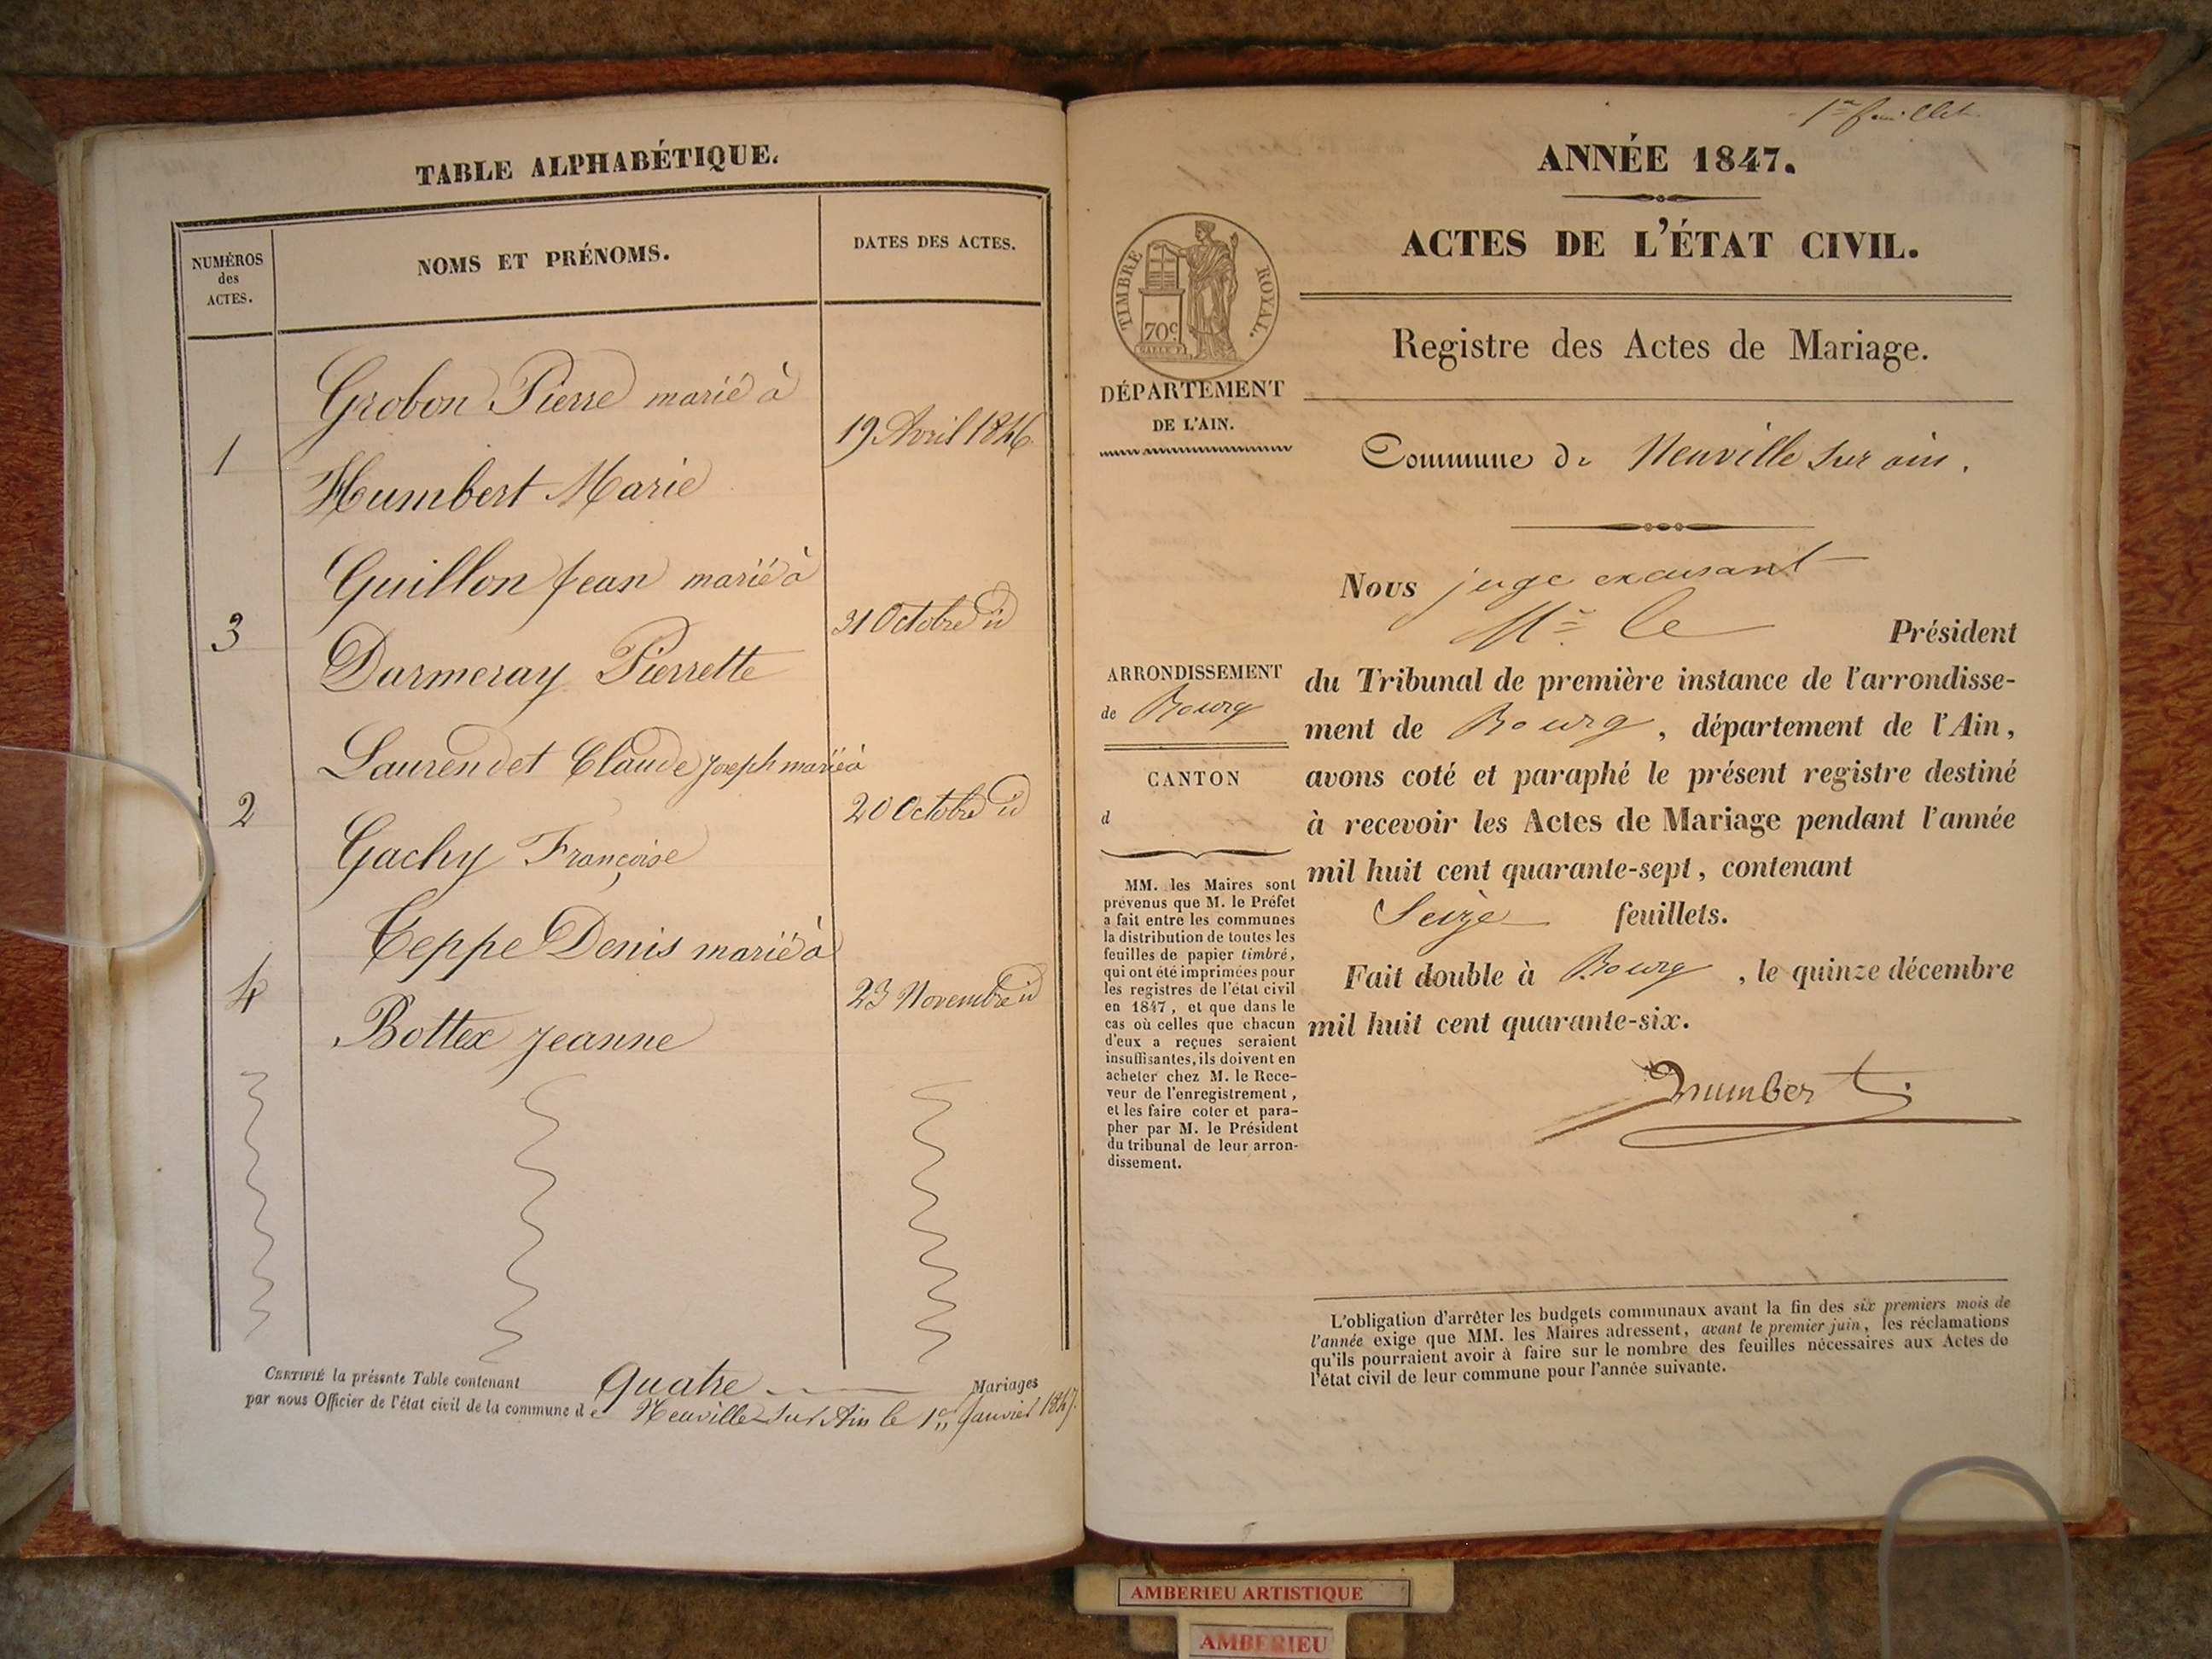 TABLE ALPHABÉTIQUE.
NUMÉROS
des
ACTES.
NOMS ET PRÉNOMS.
DATES DES ACTES.
Grobon Pierre marié à
1
19 Avril 1846
Humbert Marie
Guillon Jean marié à
3
31 Octobre id
Darmeray Pierrette
Laurendet Claude Joseph marié à
2
20 Octobre id
Gachy Françoise
Teppe Denis marié à
4
23 Novembre id
Bottex Jeanne
CERTIFIÉ la présente Table contenant quatre Mariages
par nous Officier de l'état civil de la commune de Neuville sur Ain le 1er Janvier 1847.
1er feuillet
ANNÉE 1847.
ACTES DE L'ÉTAT CIVIL.
TIMBRE ROYAL.
70c
Registre des Actes de Mariage.
DÉPARTEMENT
DE L'AIN.
Commune de Neuville sur ain.
Nous juge
Mr le Président
du Tribunal de première instance de l'arrondisse-
ment de Bourg, département de l'Ain,
avons coté et paraphé le présent registre destiné
à recevoir les Actes de Mariage pendant l'année
mil huit cent quarante-sept, contenant
Seize feuillets.
Fait double à Bourg, le quinze décembre
mil huit cent quarante-six.
humbert
ARRONDISSEMENT
de Bourg
CANTON
d
MM. les Maires sont
prévenus que M. le Préfet
a fait entre les communes
la distribution de toutes les
feuilles de papier timbré,
qui ont été imprimées pour
les registres de l'état civil
en 1847, et que dans le
cas où celles que chacun
d'eux a reçues seraient
insuffisantes, ils doivent en
acheter chez M. le Rece-
veur de l'enregistrement,
et les faire coter et para-
pher par M. le Président
du tribunal de leur arron-
dissement.
L'obligation d'arrêter les budgets communaux avant la fin des six premiers mois de
l'année exige que MM. les Maires adressent, avant le premier juin, les réclamations
qu'ils pourraient avoir à faire sur le nombre des feuilles nécessaires aux Actes de
l'état civil de leur commune pour l'année suivante.
AMBERIEU ARTISTIQUE
AMBERIEU